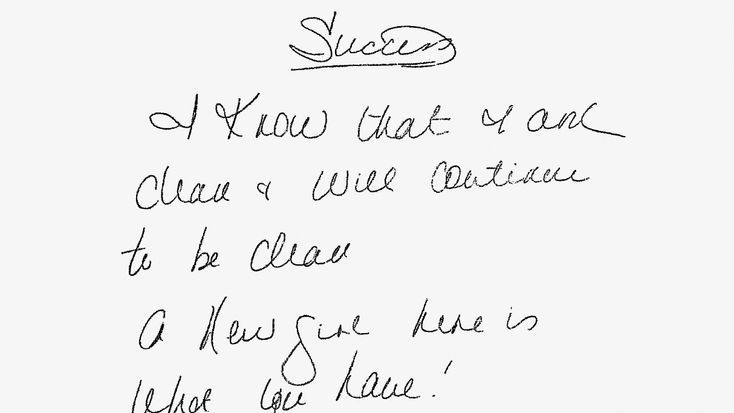 Success
I Know that I am
clean & will continue
to be clean
A New girl here is
what you have!